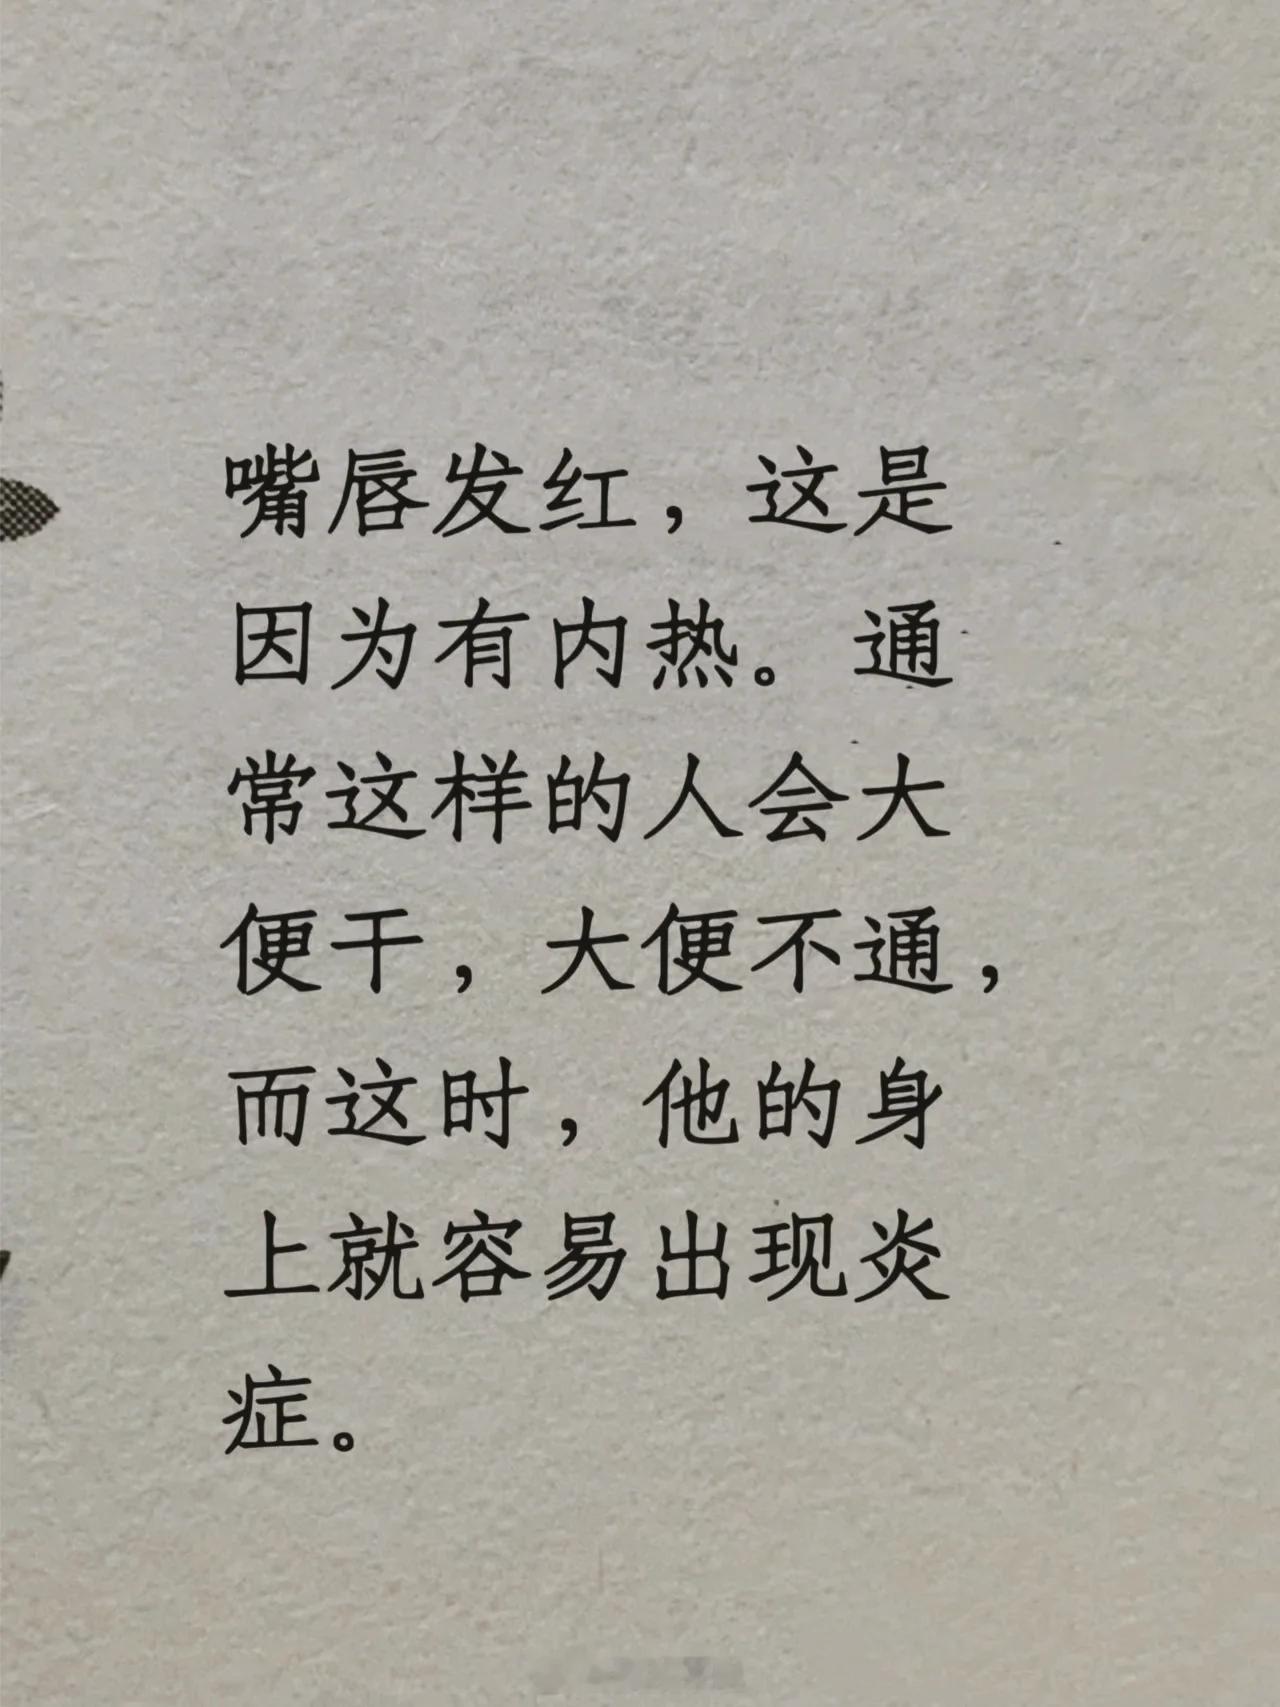 嘴唇发红，这是
因为有内热。通
常这样的人会大
便干，大便不通，
而这时，他的身
上就容易出现炎
症。